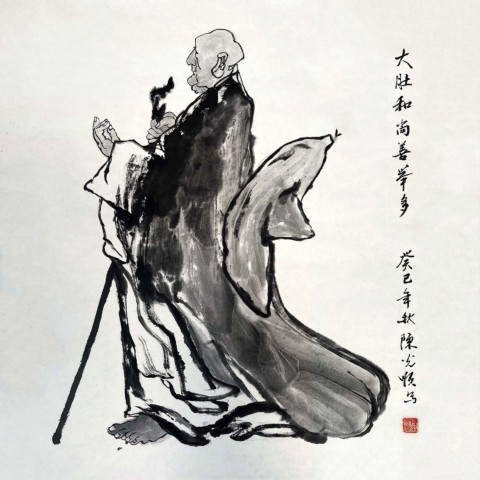 大肚和尚善举多
癸巳年秋陳光順写